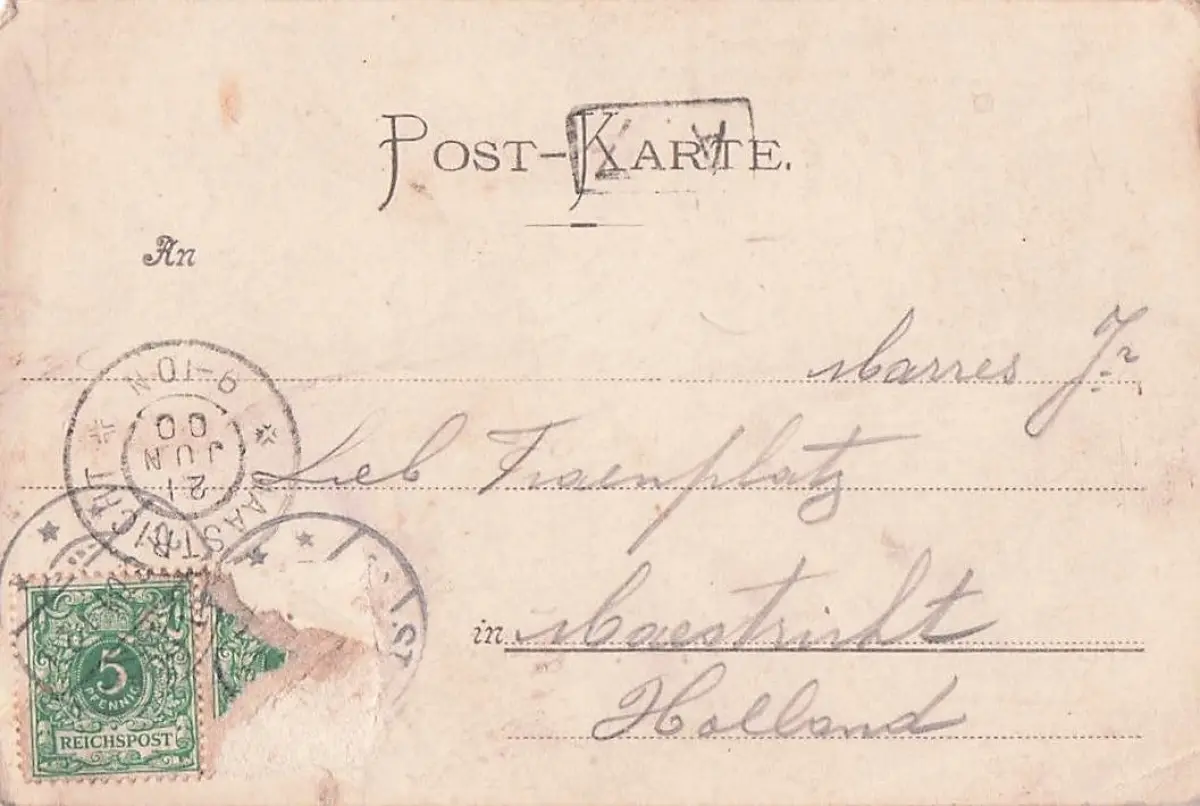 POST-KARTE.
An
Marres Jr
Lieb Fraenplatz
in Maestricht
Holland
MAASTRICHT
9-10N
21
JUN
00
5
PFENNIG
REICHSPOST
ST